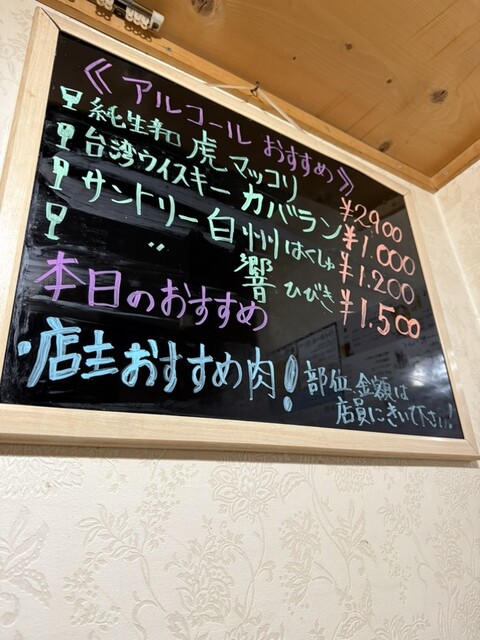 《アルコールおすすめ》
純生辛口 虎マッコリ ¥2900
台湾ウイスキー カバラン ¥1.000
サントリー 白州 はくしゅ ¥1.200
〃 響 ひびき ¥1.500
本日のおすすめ
・店主おすすめ肉! 部位、金額は
店員にきいて下さい!